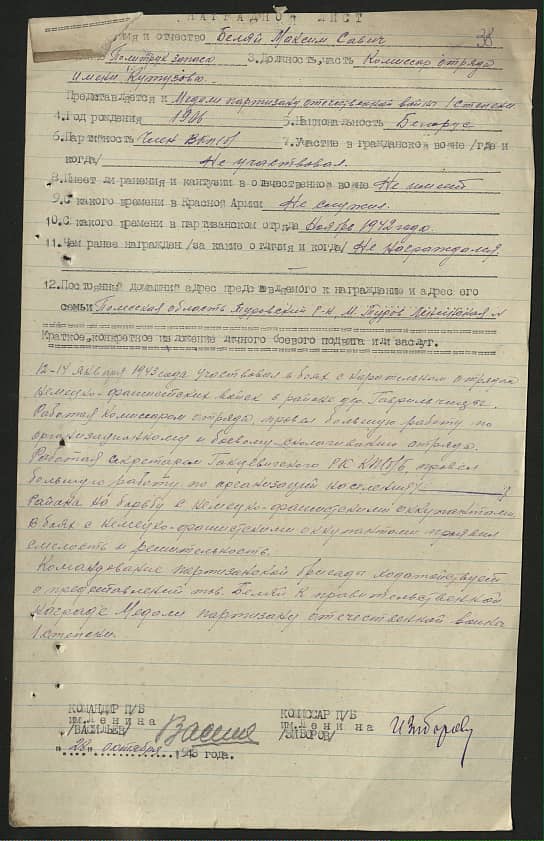 НАГРАДНОЙ ЛИСТ
имя и отчество Беляй Максим Савич 38
Политрук запаса 3. Должность, часть Комиссар отряда
имени Кутузова.
Представляется к Медали партизану отечественной войны I степени
4. Год рождения 1906 5. Национальность Белорус
6. Партийность Член ВКП(б) 7. Участие в гражданской войне /где и
когда/ Не участвовал.
8. Имеет ли ранения и контузии в отечественной войне Не имеет
9. С какого времени в Красной Армии Не служил.
10. С какого времени в партизанском отряде Ноябрь 1942 года.
11. Чем ранее награжден /за какие отличия и когда/ Не награждался.
12. Постоянный домашний адрес представляемого к награждению и адрес его
семьи Полесская область Туровский р-н м. Туров Ленинская
Краткое, конкретное изложение личного боевого подвига или заслуг.
12-14 января 1943 года участвовал в боях с карательным отрядом
немецко-фашистских войск в районе дер. Гаврильчицы.
Работая комиссаром отряда, провел большую работу по
организационному и боевому сколачиванию отряда.
Работая секретарем РК КП(б)Б, провел
большую работу по организации населения
района на борьбу с немецко-фашистскими оккупантами.
В боях с немецко-фашистскими оккупантами проявил
смелость и решительность.
Командование партизанской бригады ходатайствует
о представлении тов. Беляй к правительственной
награде Медали партизану отечественной войны
I степени.
КОМАНДИР П/Б КОМИССАР П/Б
им. Ленина им. Ленина
/ВАСИЛЬЕВ/ /ЗИБОРОВ/
"28" октября 1943 года.